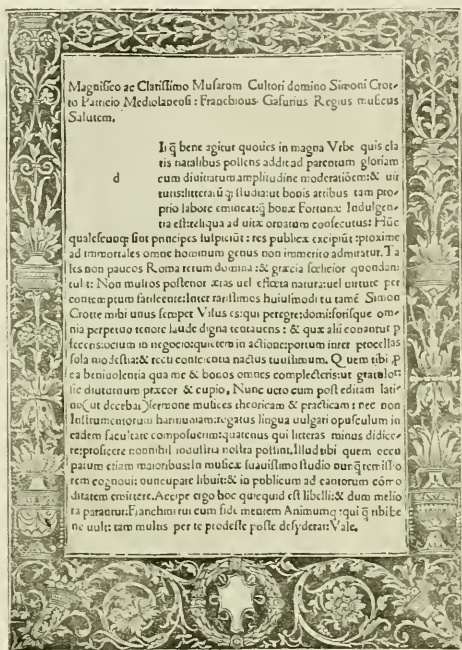 Magnifico ac Clarissimo Musarum Cultori domino Simoni Crot-
to Patricio Mediolanensi: Franchinus Gafurius Regius musicus
Salutem.
Ii q̃ bene agitur quoties in magna Vrbe quis cla
tis natalibus pollens addit ad parentum gloriam
d
cum diuitiarum amplitudine moderatiõem: & uir
tutis: litterarũ q; studia: ut bonis artibus tam pro-
prio labore emineat: q̃ bonæ Fortunæ Indulgen-
tia est: reliqua ad uitæ ornatum consecutus: Hũc
qualescunq; sint principes suspiciũt: res publicæ excipiũt: proxime
ad immortales omne hominum genus non immerito admiratur. Ta
les non paucos Roma rerum domina: & græcia fœlicior quondam
tulit: Non multos postenor ætas uel effœta natura: uel uirtute per
contemptum fatiscente: Inter rarissimos huiusmodi tu tamẽ Simon
Crotte mihi unus semper Visus es: qui peregre: domi: forisque om-
nia perpetuo tenore laude digna tentauens: & quæ alii conantur p
fecens: ocium in negocio: quietem in actione: portum inter procellas
sola modestia: & recti conscientia nactus tutissimum. Quem tibi p
ea beniuolentia qua me & bonos omnes complecteris: ut gratulor:
sic diuturnum præcor & cupio. Nunc uero cum post editam lati-
no (ut decebat) sermone musices theoricam & practicam: nec non
Instrumentorum harmoniam: rogatus lingua uulgari opusculum in
eadem facultate composuerim: quatenus qui litteras minus didice-
re: proficere nonnihil industria nostra possint. Illud tibi quem occu
patum etiam maioribus: In musicæ suauissimo studio nunq̃ remissio
rem cognoui: nuncupare libuit: & in publicum ad cantorum cõmo
ditatem emittere. Accipe ergo hoc quicquid est libelli: & dum melio
ra parantur: Franchini tui cum fide mentem Animumq; qui q̃ tibi be
ne uult: tam multis per te prodesse posse desyderat: Vale.